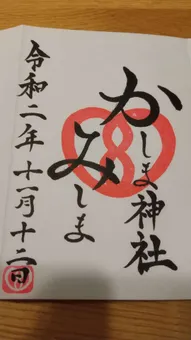 かしま神社
みしま
令和二年十一月十二日